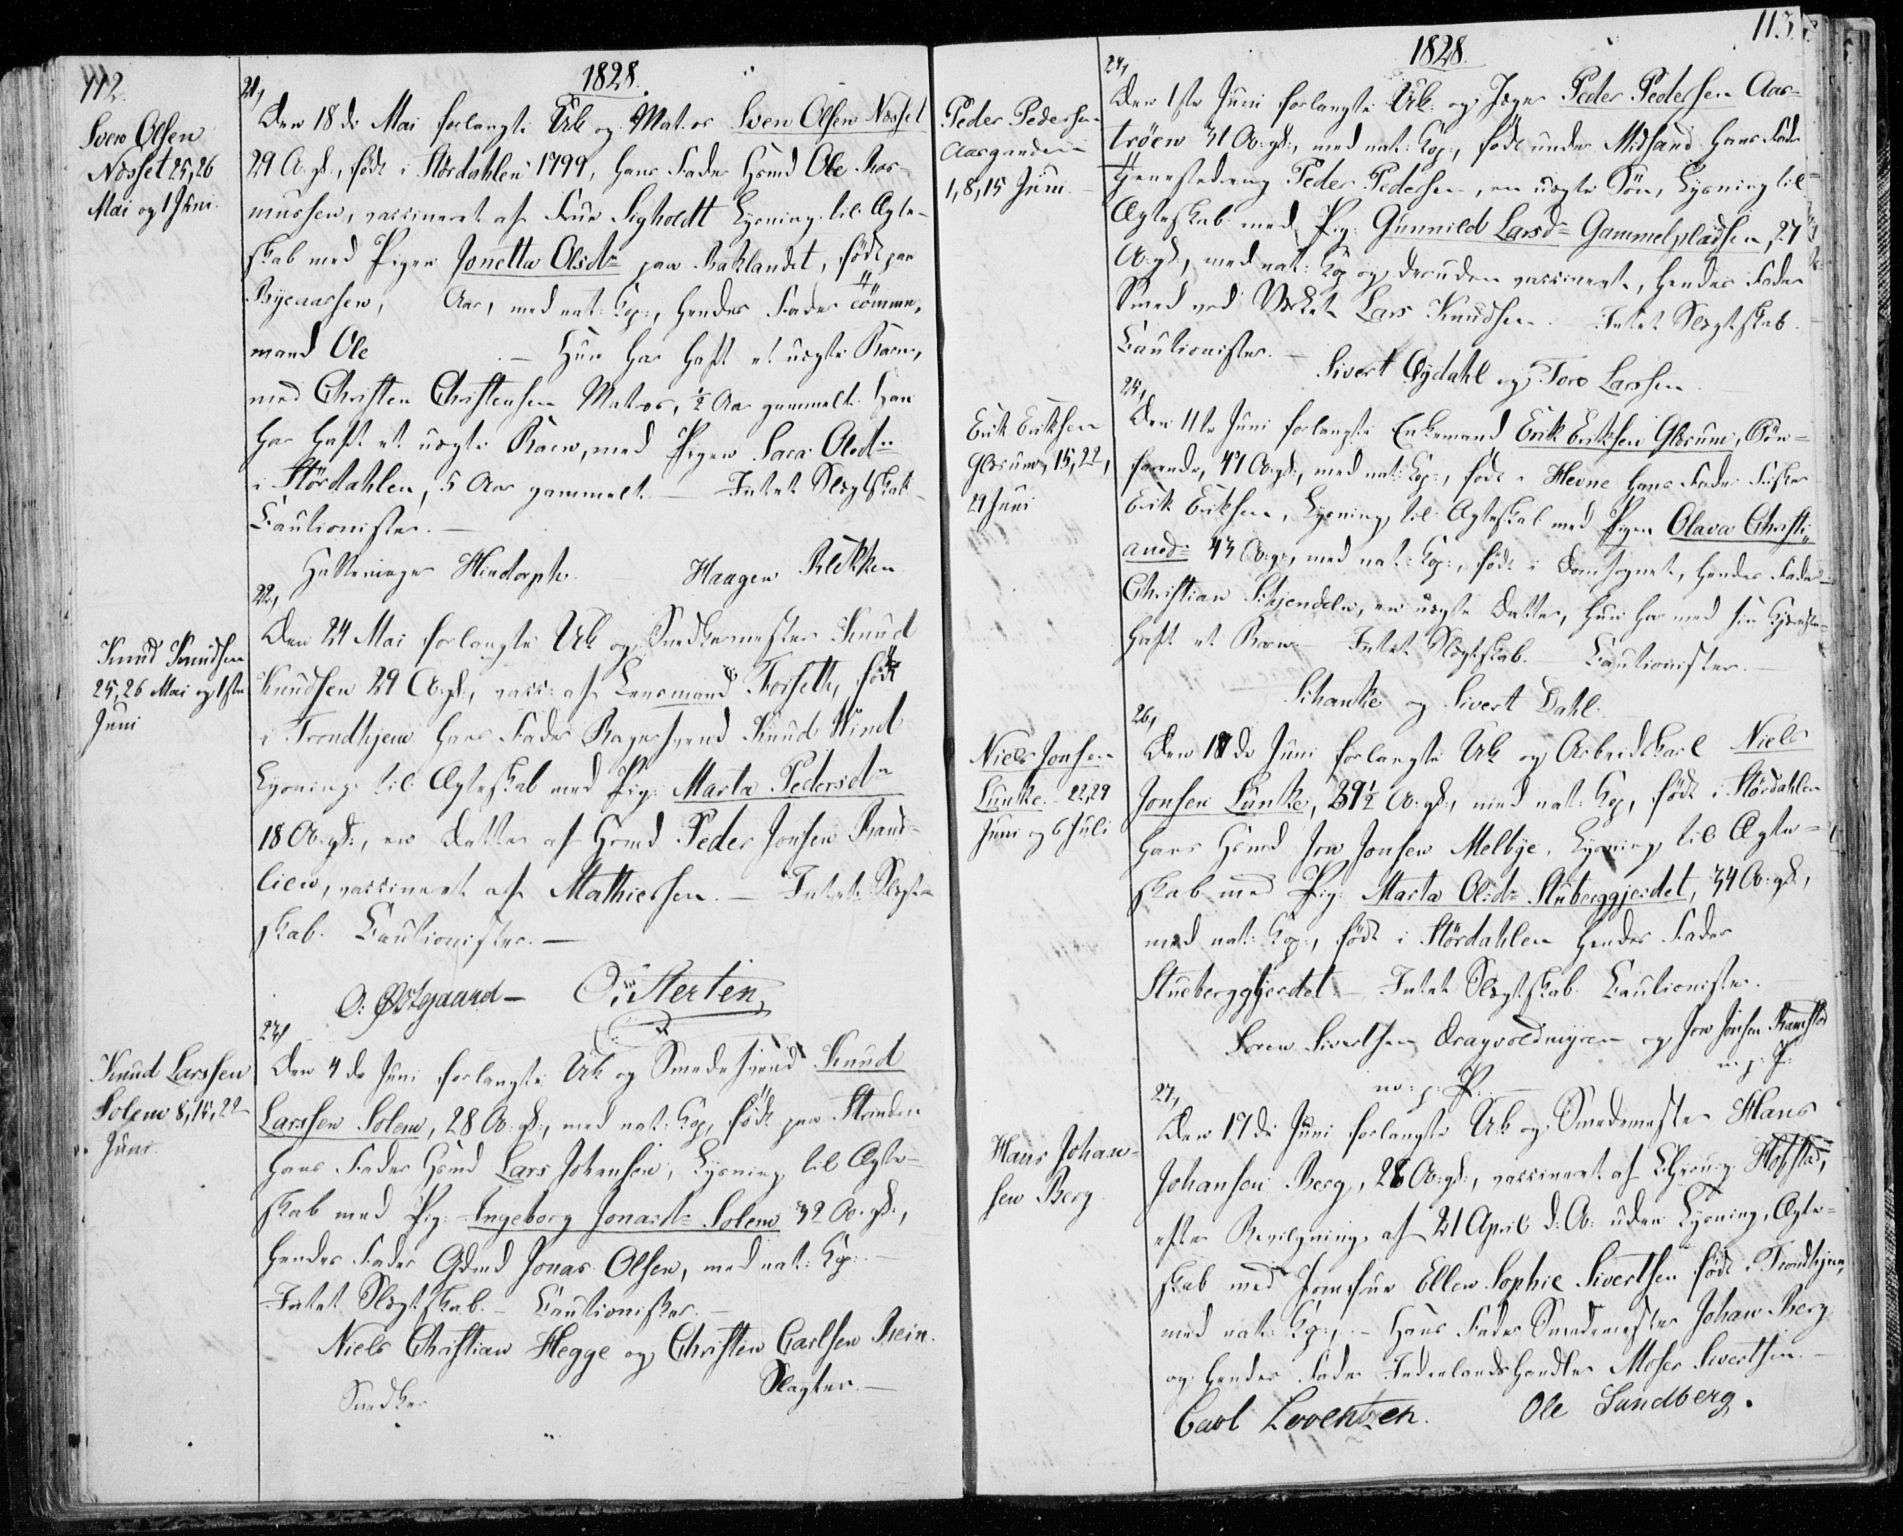 112.
1828.
Sven Olsen
Nosset 25, 26
Mai og 1 Juni.
21,
Den 18 de Mai forlangte Uk og Matros Sven Olsen Nosset
29 A. gl., født i Størdahlen 1799, hans Fader Hsmd Ole Ras-
mussen, vaccineret af Frue Sigholdt Lysning til Ægte-
skab med Pigen Jonetta Olsdtr paa Baklandet, født paa
Byeaassen, Aar, med nat: Kop:, hendes Fader Tömmer-
mand Ole — Hun har haft et uægte Barn,
med Christen Christensen Matros, ½ Aar gammelt. Han
har haft et uægte Barn, med Pigen Sara Olsdtr
i Størdahlen, 5 Aar gammelt. — Intet Slægtskab —
Cautionister. —
Hindorph. Haagen Blekken
Knud Knudsen
25, 26 Mai og 1ste
Juni
22,
Den 24 Mai forlangte Uk og Snedkermester Knud
Knudsen 29 A. gl., vacc: af Lensmand Forseth, født
i Trondhjem hans Fader Knud Wind
Lysning til Ægteskab med Pig: Marta Pedersdtr
18 A. gl:, en Datter af Hsmd Peder Jonsen Rand-
lien, vaccineret af Mathiessen. — Intet Slægt-
skab. Cautionister. —
O: Østgaard — O: Sterten
Knud Larssen
Solem 8, 15, 22
Juni.
23,
Den 4 de Juni forlangte Uk og Smedesvend Knud
Larssen Solem, 28 A. gl:, med nat: Kop, født paa Strinden
hans Fader Hsmd Lars Johansen, Lysning til Ægte-
skab med Pig: Ingeborg Jonasdtr Solem 32 A. gl.,
hendes Fader Gdmd Jonas Olsen, med nat: Kop: —
Intet Slægtskab. — Cautionister. —
Niels Christian Hegge og Christen Carlsen Rein.
Snedker Slagter. —
113.
1828.
Peder Pedersen
1, 8, 15 Juni.
24,
Den 1ste Juni forlangte Uk: og Peder Pedersen Aas-
trøen 31 A. gl:, med nat: Kop:, født under Midsand hans Fader
Tjenestedreng Peder Pedersen, en uægte Søn, Lysning til
Ægteskab med Pig: Gunnild Larsdr Gammelpladsen, 27
A. gl., med nat: Kop og desuden vaccineret, hendes Fader
Smed ved Værket Lars Knudsen. Intet Slægtskab.
Cautionister. —
Sivert Øydahl og Tore Larssen.
Erik Eriksen
Glæsum, 15, 22,
29 Juni
25,
Den 11te Juni forlangte Enkemand Erik Eriksen Glæsum, Søe-
farende, 47 A. gl:, med nat: Kop:, født i Hevne hans Fader Fisker
Erik Eriksen, Lysning til Ægteskab med Pigen Olava Christi-
ansdr 43 A. gl., med nat: Kop:, født i Domsognet, hendes Fader
Christian Schjendeln, en uægte Datter, hun har med sin Kjæreste
haft et Barn — Intet Slægtskab. — Cautionister. —
Schanke og Sivert Dahl.
Niels Jonsen
Lunke. 22, 29
Juni og 6 Juli
26,
Den 18 de Juni forlangte Uk og Arbeidskarl Niels
Jonsen Lunke, 39½ A. gl:, med nat: Kop, født i Størdahlen
hans Hsmd Jon Jonsen Melbye. Lysning til Ægte-
skab med Pig: Marta Olsdr Stuberggjerdet, 34 A. gl.,
med nat: Kop:, født i Størdahlen hendes Fader
Stueberggjerdet. — Intet Slægtskab. Cautionister.
Soren Sivertsen Dragvoldmyren og Jon Jonsen Ranfstad
m: p: P: m: p: P:
Hans Johan-
sen Berg.
27,
Den 17 de Juni forlangte Uk og Smedemester Hans
Johansen Berg, 28 A. gl:, vaccineret af Chirurg: Hofstad,
efter Bevilgning af 21 April d: A: uden Lysning, Ægte-
skab med Jomfrue Ellen Sophie Sivertsen født i Trondhjem,
med nat: Kop:, — Hans Fader Smedemester Johan Berg
og hendes Fader Moses Sivertsen. —
Carl Lorentzen. Ole Sandberg.